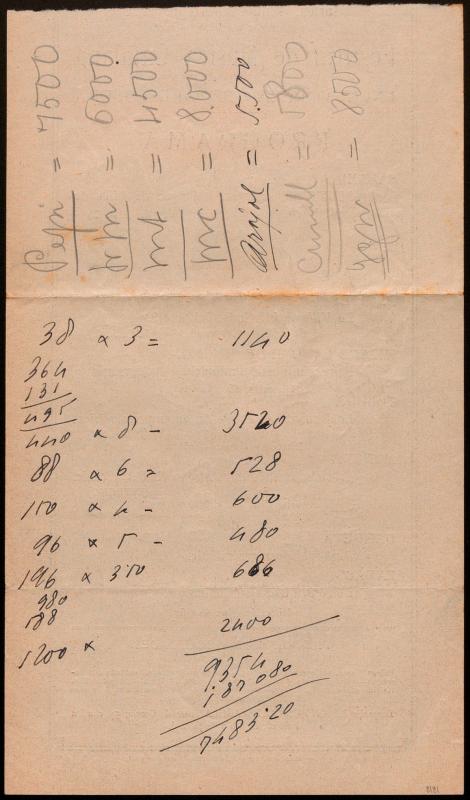 Pepi = 7500
= 6000
mt = 4500
mc = 8.000
arajol = 5.500
= 5800
= 8500
38 x 3 = 1140
364
131
495
440 x 8 - 3520
88 x 6 = 528
150 x 4 - 600
96 x 5 - 480
196 x 350 686
980
588
1200 x 2400
9354
187080
7483.20
8181